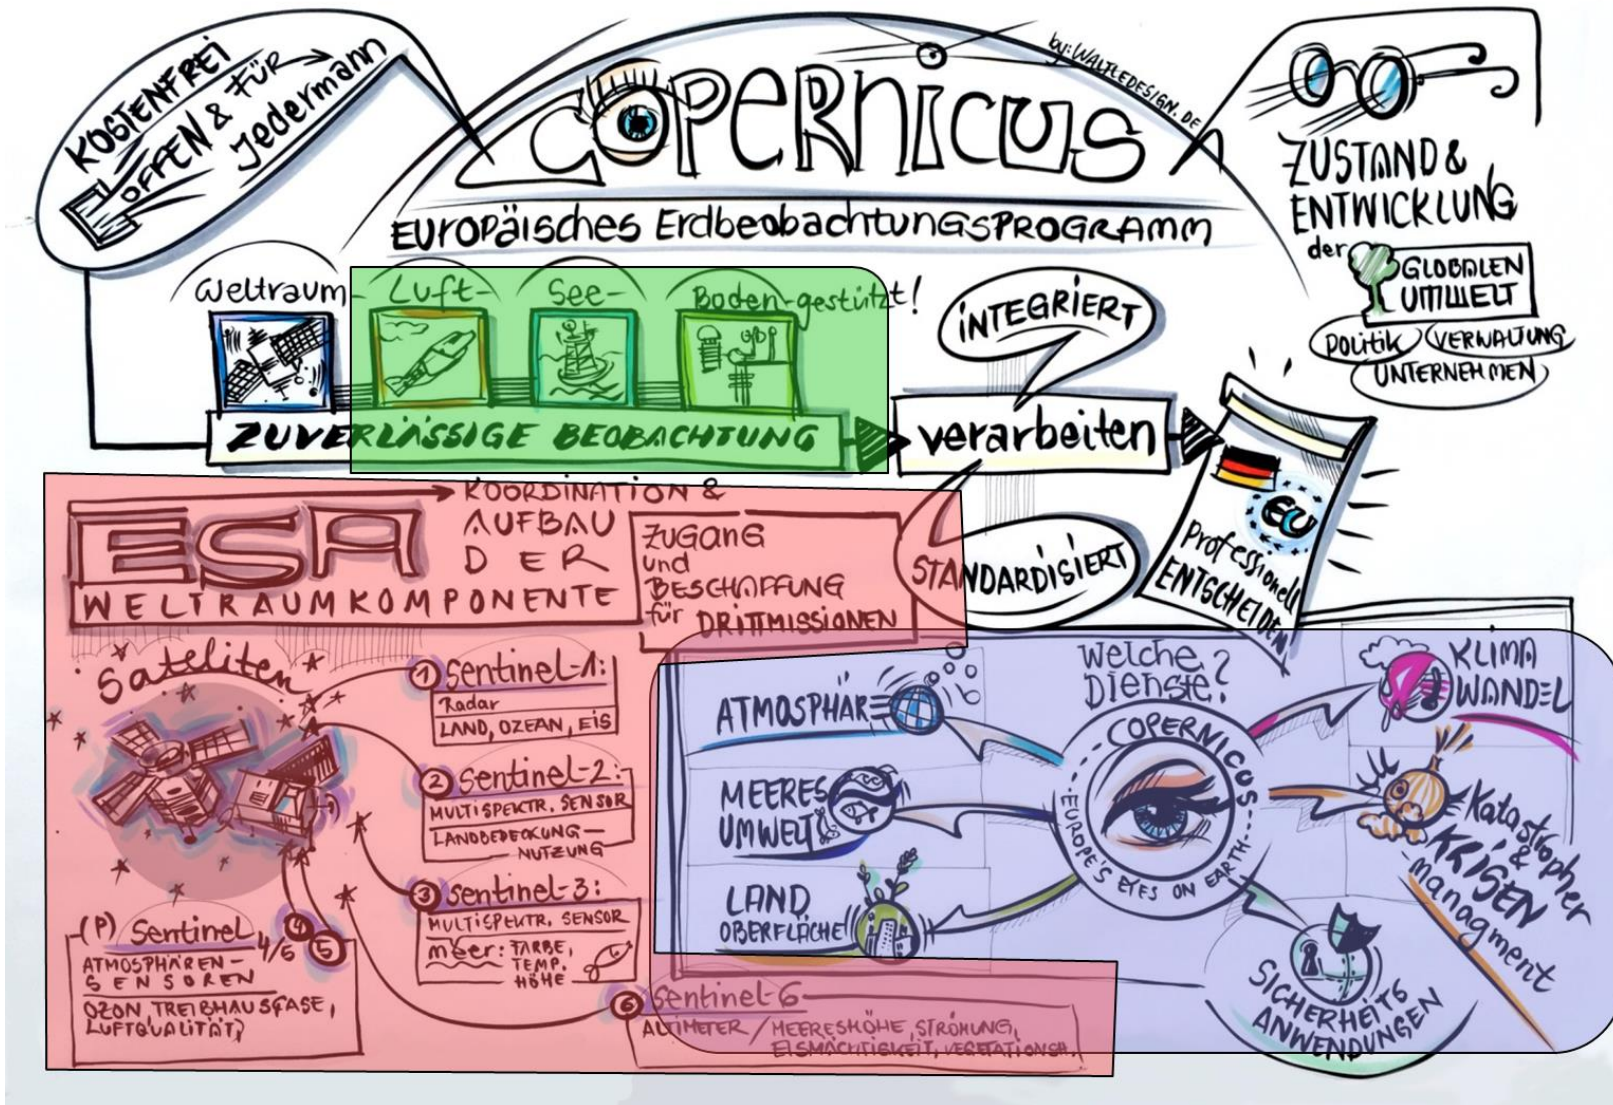 KOSTENFREI
OFFEN & FÜR
Jedermann
COPERNICUS
by: WALTLEDESIGN.DE
EUROPÄisches ErdbeobachtungsPROGRAMM
ZUSTAND &
ENTWICKLUNG
der GLOBALEN
UMWELT
Politik VERWALTUNG
UNTERNEHMEN
Weltraum- Luft- See- Boden-gestützt!
ZUVERLÄSSIGE BEOBACHTUNG
iNTEGRIERT
verarbeiten
STANDARDiSiERT
EU
Professionell
ENTSCHEIDEN
ESA
KOORDINATION &
AUFBAU
DER
WELTRAUMKOMPONENTE
ZUGANG
und
BESCHAFFUNG
für DRITTMISSIONEN
Sateliten
1 Sentinel-1:
Radar
LAND, OZEAN, EIS
2 Sentinel-2:
MULTISPEKTR. SENSOR
LANDBEDECKUNG-
NUTZUNG
3 Sentinel-3:
MULTISPEKTR. SENSOR
meer: FARBE,
TEMP.
HÖHE
(P) Sentinel 4/6 4 5
ATMOSPHÄREN-
SENSOREN
OZON, TREIBHAUSGASE,
LUFTQUALITÄT,
6 Sentinel-6
ALTIMETER / MEERESHÖHE, STRÖMUNG,
EISMÄCHTIGKEIT, VEGETATIONSH.
Welche
Dienste?
ATMOSPHÄRE
MEERES
UMWELT
LAND
OBERFLÄCHE
COPERNICUS
EUROPE'S EYES ON EARTH
KLIMA
WANDEL
Katastrophen
&
KRISEN
managment
SICHERHEITS
ANWENDUNGEN